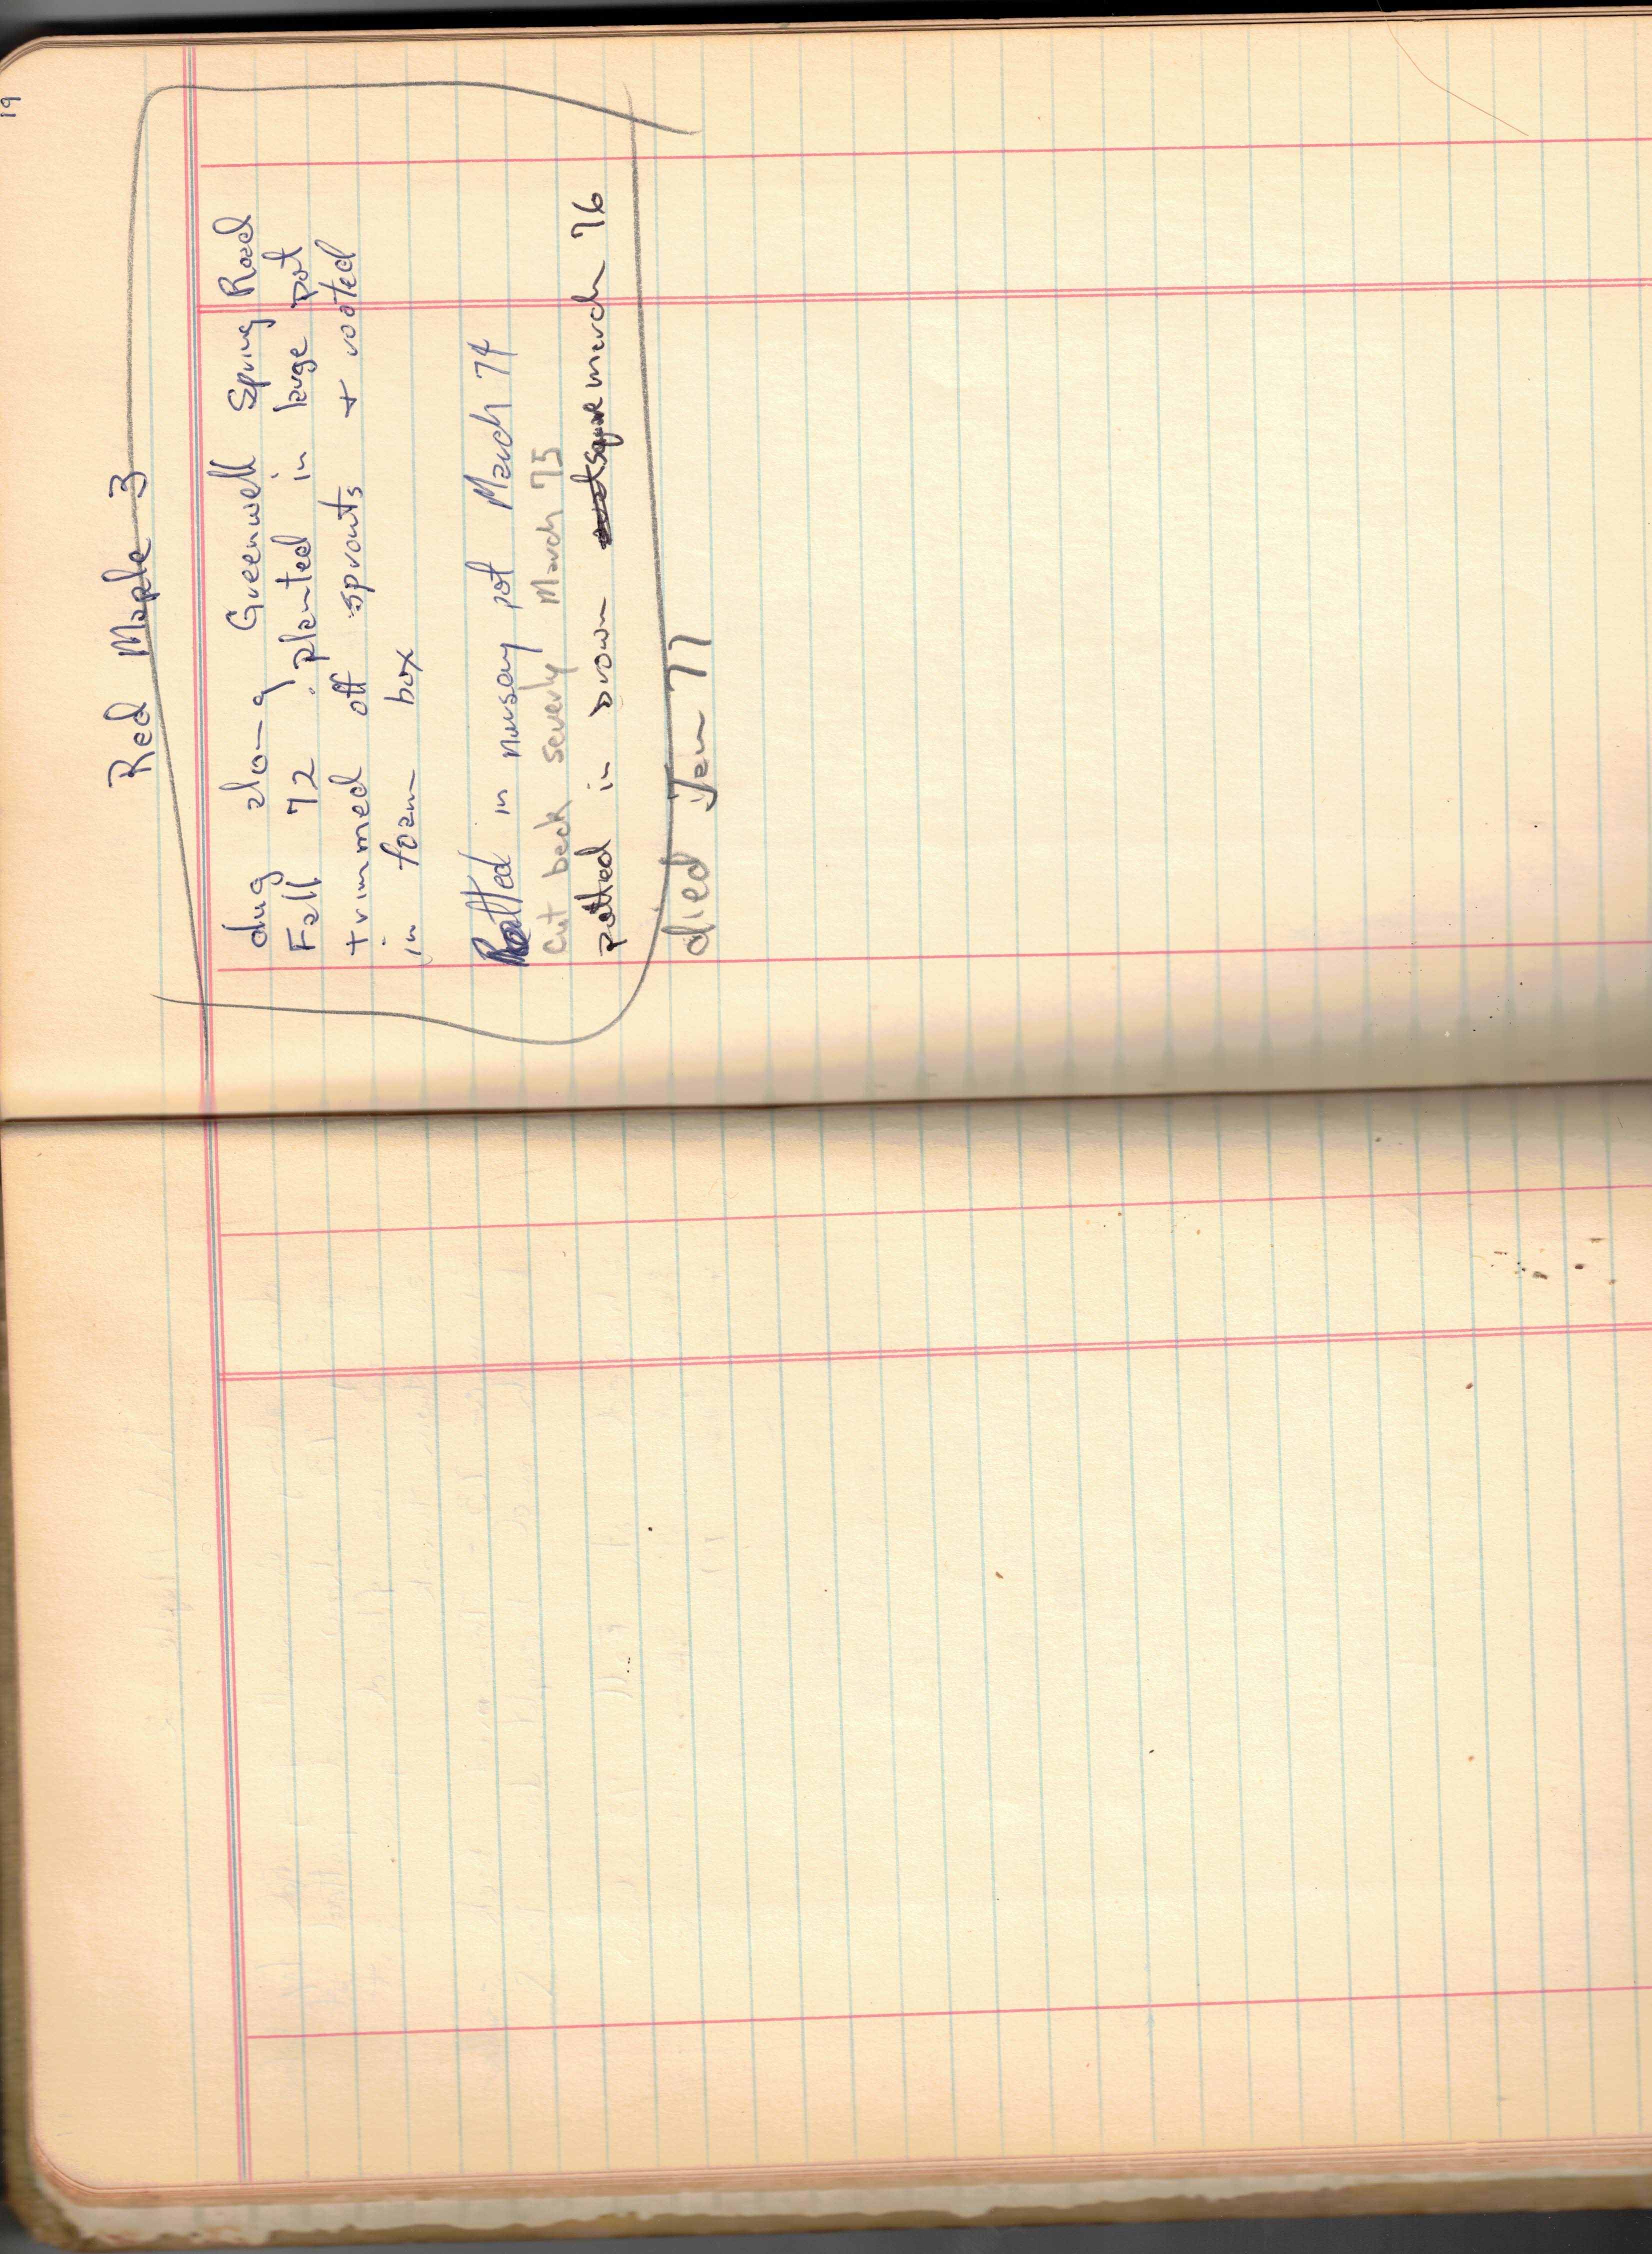 19
Red Maple 3
dug along Greenwell Spring Road
Fall 72 . planted in large pot
trimmed off sprouts + rooted
in foam box
Potted in nursery pot March 74
Cut back severly March 75
potted in brown square march 76
died Jan 77